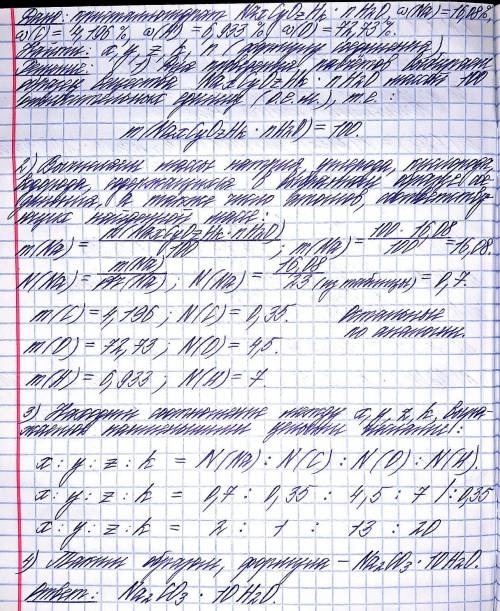 Дано: кристаллогидрат NaxCyOzHk · nH2O, ω(Na) = 16,08%
ω(C) = 4,196%  ω(H) = 6,933%  ω(O) = 72,73%.
Найти: x, y, z, k, n (формулу соединения)
Решение: 1) Для расчётов выбираем
порцию вещества NaxCyOzHk · nH2O массой 100
относительных единиц (о.е.м.), т.е.:
m(NaxCyOzHk · nH2O) = 100.
2) Вычисляем массы натрия, углерода, кислорода,
водорода, содержащиеся в выбранной порции
а также число атомов, соответству-
ющих найденной массе:
m(Na) = m(NaxCyOzHk · nH2O) / 100 ; m(Na) = 100 · 16,08 / 100 = 16,08.
N(Na) = m(Na) / Ar(Na) ; N(Na) = 16,08 / 23 (из таблицы) = 0,7.
m(C) = 4,196 ; N(C) = 0,35. Остальные
m(O) = 72,73 ; N(O) = 4,5. по аналогии.
m(H) = 6,933 ; N(H) = 7
3) Находим соотношение между x, y, z, k, выра-
женное наименьшими целыми числами:
x : y : z : k = N(Na) : N(C) : N(O) : N(H).
x : y : z : k = 0,7 : 0,35 : 4,5 : 7 | : 0,35
x : y : z : k = 2 : 1 : 13 : 20
4) Таким образом, формула – Na2CO3 · 10H2O.
Ответ: Na2CO3 · 10H2O.